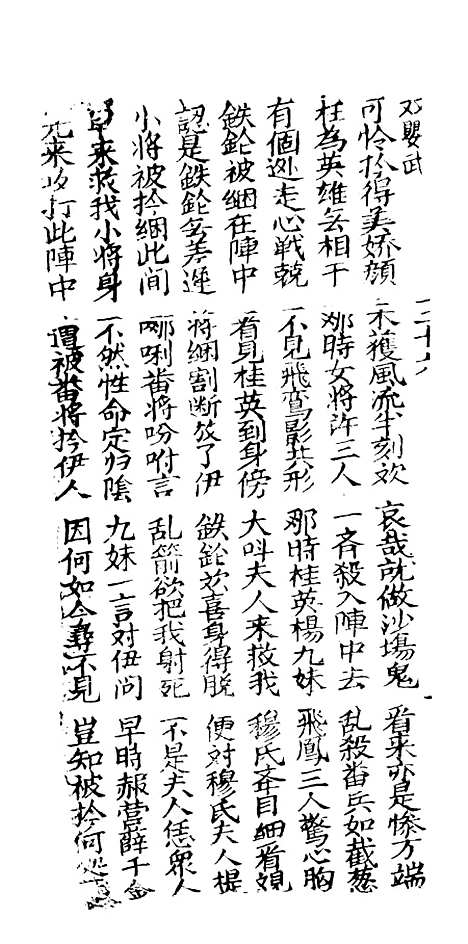 嬰武
可怜拎得美娇顔 未獲風流半刻欢 哀哉就做沙場鬼 看来亦是惨万端
枉為英雄無相干 那時女将許三人 一斉殺入陣中去 乱殺畨兵如截葱
有個逊走心戦兢 不見飛鸞影共形 那时桂英楊九妹 飛鳳三人驚心胸
鉄鈴被綑在陣中 看見桂英到身傍 大呌夫人来救我 穆氏夲目細看覌
認是鉄鈴無差遅 将綑割断放了伊 鉄鈴欢喜身得脱 便对穆氏夫人提
小将被拎綑此间 哪唎畨将吩咐言 乱箭欲把我射死 不是夫人恁衆人
早来救我小将身 不然性命定归陰 九妹一言对伊问 早時赧营薛千金
元来攻打此陣中 謂被畨将拎伊人 因何如今彞不見 豈知被拎何处